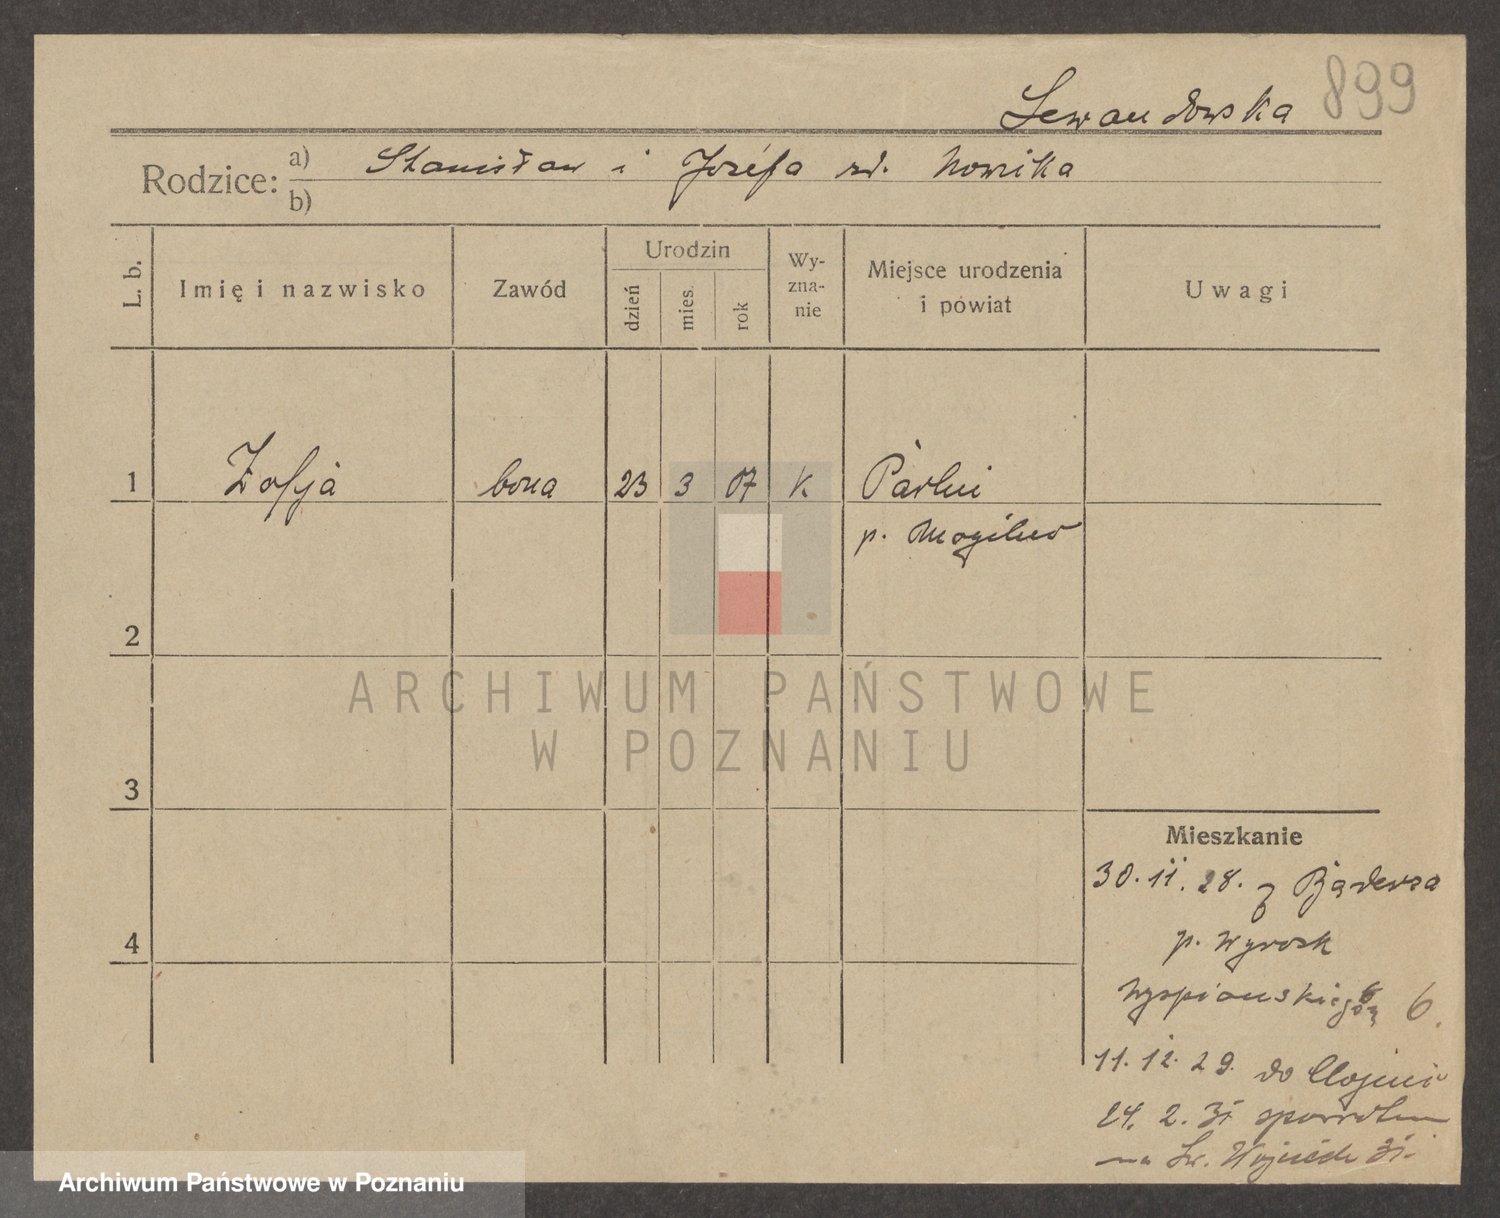 Lewandowska 899
Rodzice: a) Stanisław i Józefa rd. Nowika
b)
L. b.
Imię i nazwisko
Zawód
Urodzin
dzień
mies.
rok
Wy-
zna-
nie
Miejsce urodzenia
i powiat
Uwagi
1 Zofja bona 23 3 07 K
p. Mogilno
2
3
4
Mieszkanie
30. 11. 28. z
p. Wyrosk
Wyspiańskiego 6.
11. 12. 29. do
24. 2. 31
Św. Wojciech 31.
ARCHIWUM PAŃSTWOWE
W POZNANIU
Archiwum Państwowe w Poznaniu